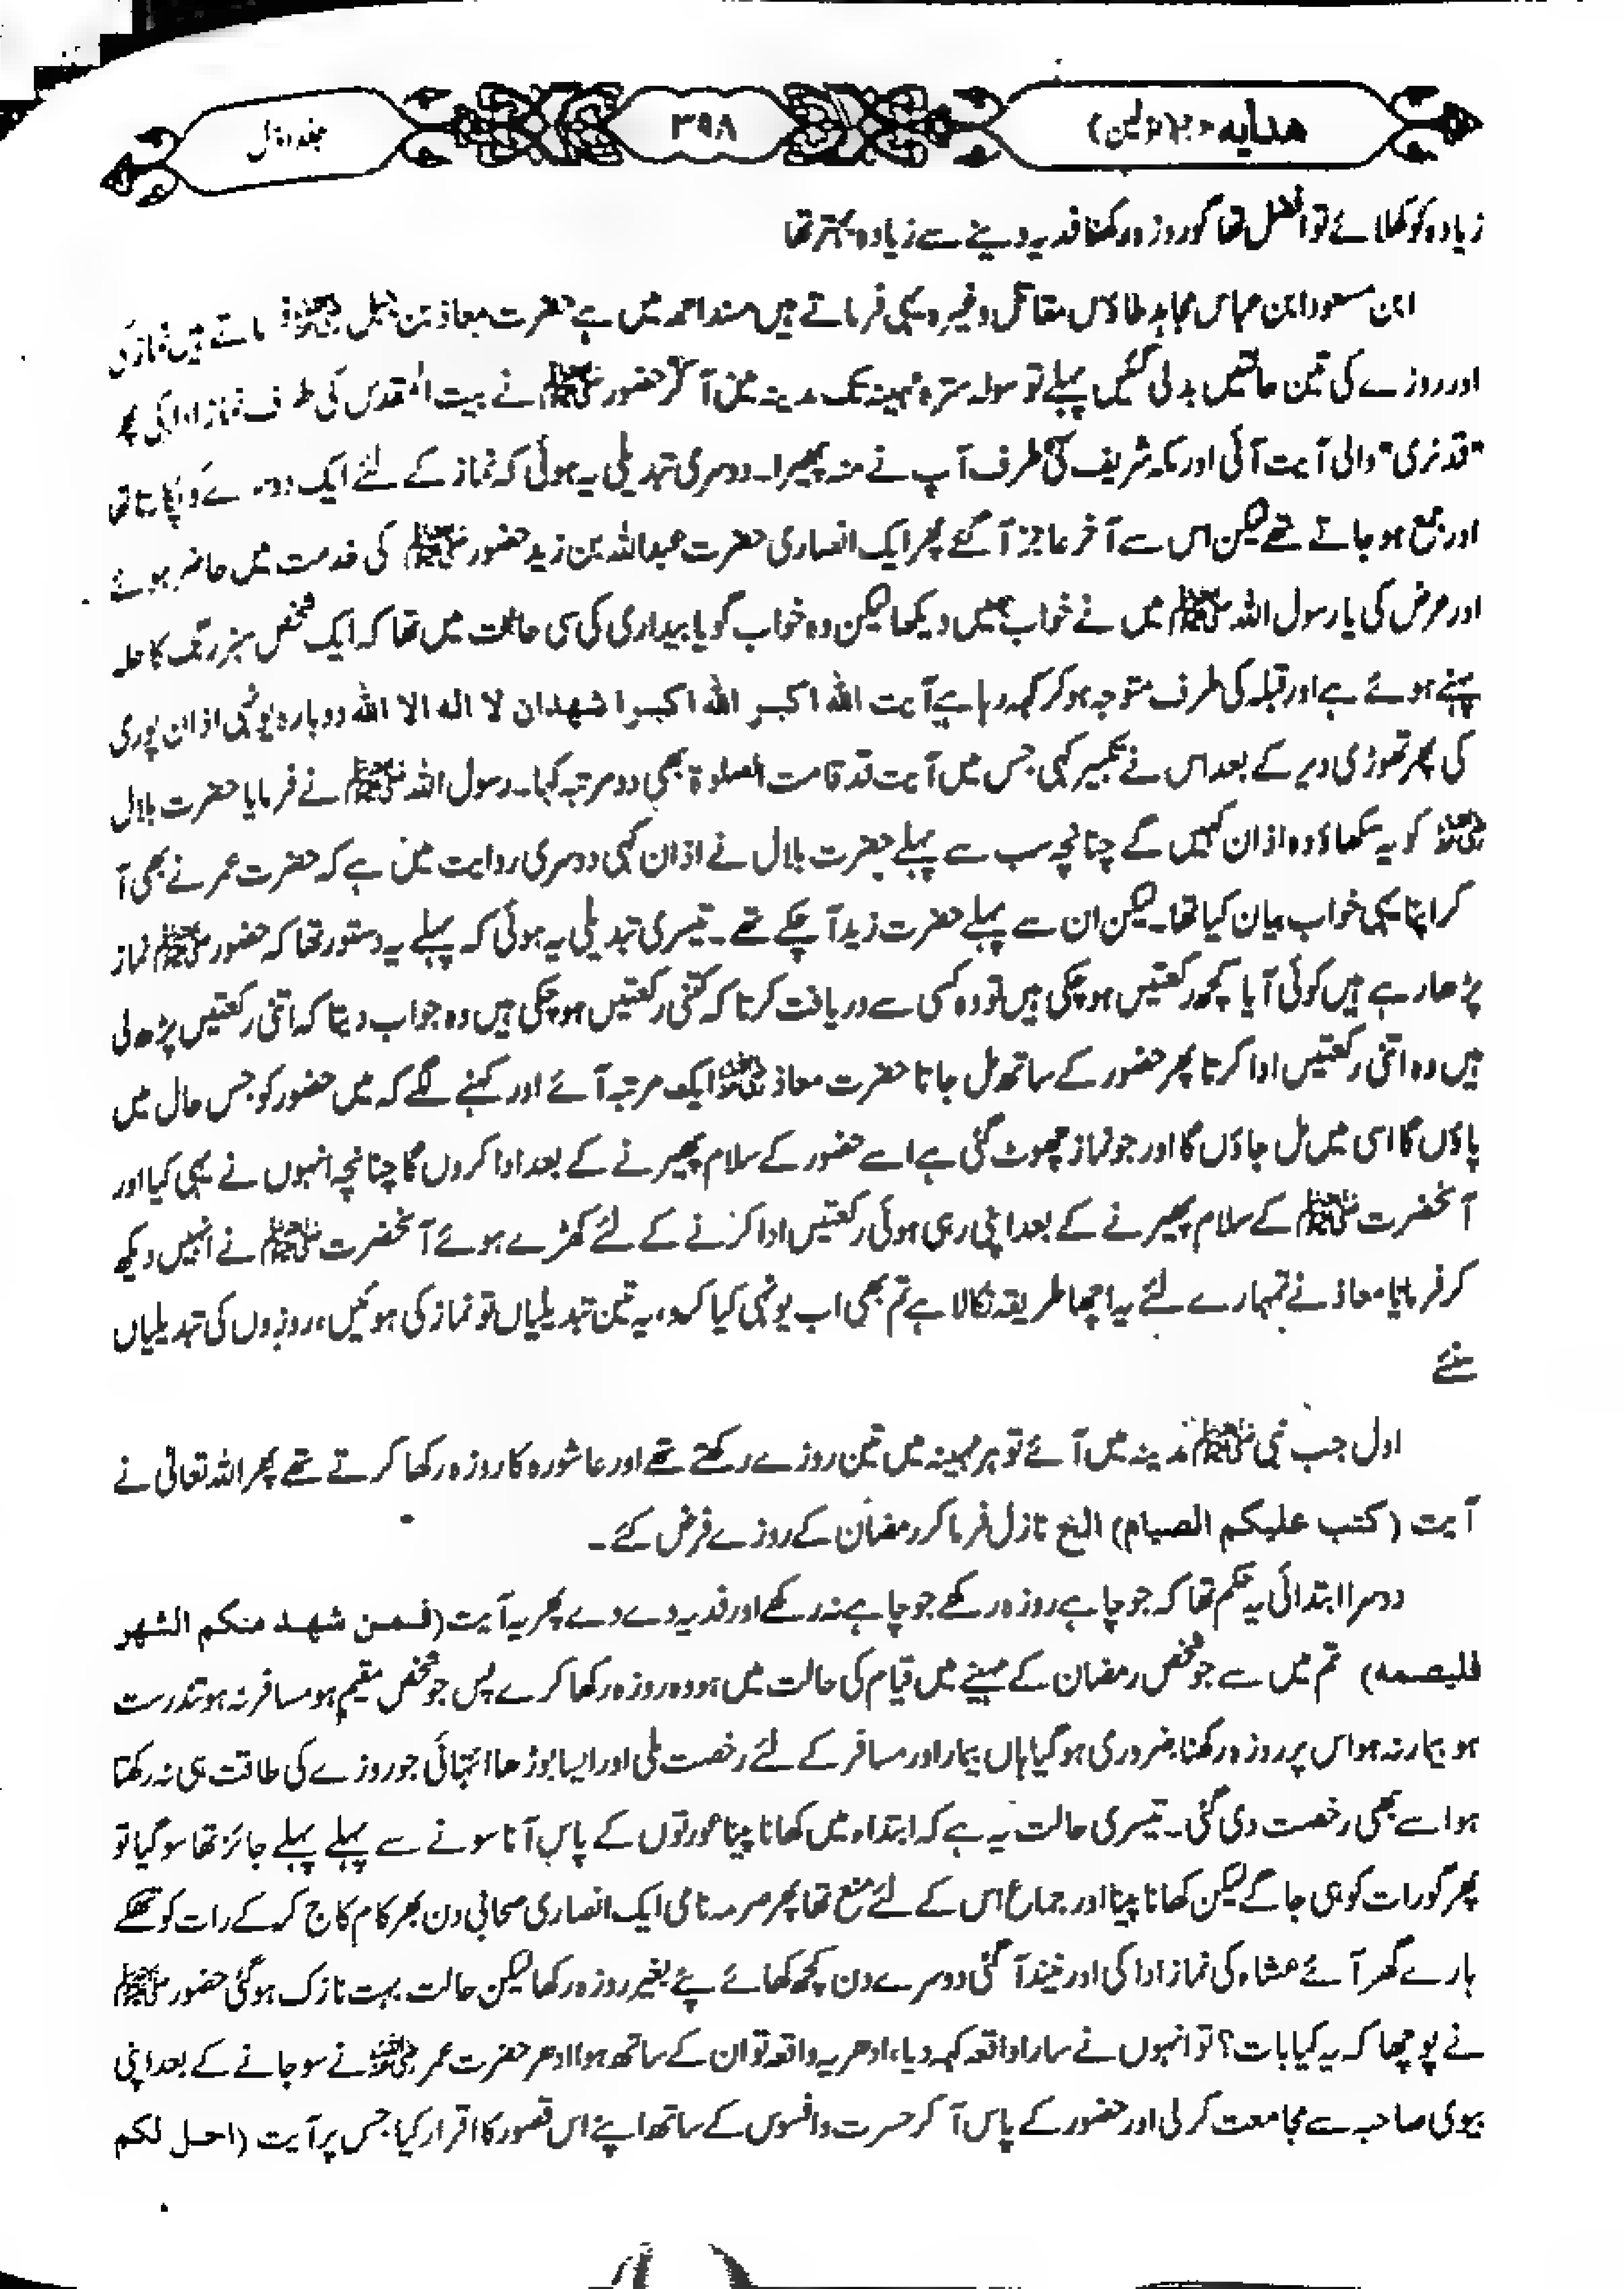 هدایه (اولین) ۳۹۸ جلد اول
زیادہ کو کھلائے تو افضل تھا گو روزہ رکھنا فدیہ دینے سے زیادہ بہتر تھا
ابن مسعود ابن عباس مجاہد طاؤس مقاتل وغیرہ یہی فرماتے ہیں مسند احمد میں ہے حضرت معاذ بن جبل رضی اللہ عنہ فرماتے ہیں نماز کی
اور روزے کی تین حالتیں بدلی گئیں پہلے تو سولہ سترہ مہینہ تک مدینہ میں آ کر حضور ﷺ نے بیت المقدس کی طرف نماز ادا کی پھر
"قد نری" والی آیت آئی اور مکہ شریف کی طرف آپ نے منہ پھیرا۔ دوسری تبدیلی یہ ہوئی کہ نماز کے لئے ایک دوسرے کو پکارتا تھا
اور جمع ہو جاتے تھے لیکن اس سے آخر عاجز آ گئے پھر ایک انصاری حضرت عبداللہ بن زید حضور ﷺ کی خدمت میں حاضر ہوئے
اور عرض کی یا رسول اللہ ﷺ میں نے خواب میں دیکھا لیکن وہ خواب گویا بیداری کی سی حالت میں تھا کہ ایک شخص سبز رنگ کا حلہ
پہنے ہوئے ہے اور قبلہ کی طرف متوجہ ہو کر کہہ رہا ہے آیت اللہ اکبر اللہ اکبر اشهدان لا اله الا الله دوبارہ یونہی اذان پوری
کی پھر تھوڑی دیر کے بعد اس نے تکبیر کہی جس میں آیت قد قامت الصلوۃ بھی دو مرتبہ کہا۔ رسول اللہ ﷺ نے فرمایا حضرت بلال
رضی اللہ عنہ کو یہ سکھاؤ وہ اذان کہیں گے چنانچہ سب سے پہلے حضرت بلال نے اذان کہی دوسری روایت میں ہے کہ حضرت عمر نے بھی آ
کر اپنا یہی خواب بیان کیا تھا۔ لیکن ان سے پہلے حضرت زید آ چکے تھے۔ تیسری تبدیلی یہ ہوئی کہ پہلے یہ دستور تھا کہ حضور ﷺ نماز
پڑھا رہے ہیں کوئی آیا کچھ رکعتیں ہو چکی ہیں تو وہ کسی سے دریافت کرتا کہ کتنی رکعتیں ہو چکی ہیں وہ جواب دیتا کہ اتنی رکعتیں پڑھ لی
ہیں وہ اتنی رکعتیں ادا کرتا پھر حضور کے ساتھ مل جاتا حضرت معاذ رضی اللہ عنہ ایک مرتبہ آئے اور کہنے لگے کہ میں حضور کو جس حال میں
پاؤں گا اسی میں مل جاؤں گا اور جو نماز چھوٹ گئی ہے اسے حضور کے سلام پھیرنے کے بعد ادا کروں گا چنانچہ انہوں نے یہی کیا اور
آنحضرت ﷺ کے سلام پھیرنے کے بعد اپنی رہی ہوئی رکعتیں ادا کرنے کے لئے کھڑے ہوئے آنحضرت ﷺ نے انہیں دیکھ
کر فرمایا معاذ نے تمہارے لئے یہ اچھا طریقہ نکالا ہے تم بھی اب یونہی کیا کرو، یہ تین تبدیلیاں تو نماز کی ہوئیں، روزوں کی تبدیلیاں
سنئے
اول جب نبی ﷺ مدینہ میں آئے تو ہر مہینہ میں تین روزے رکھتے تھے اور عاشورہ کا روزہ رکھا کرتے تھے پھر اللہ تعالی نے
آیت (کتب علیکم الصیام) الخ نازل فرما کر رمضان کے روزے فرض کئے۔
دوسرا ابتدائی یہ حکم تھا کہ جو چاہے روزہ رکھے جو چاہے نہ رکھے اور فدیہ دے دے پھر یہ آیت (فمن شهد منکم الشهر
فلیصمه) تم میں سے جو شخص رمضان کے مہینے میں قیام کی حالت میں ہو وہ روزہ رکھا کرے پس جو شخص مقیم ہو مسافر نہ ہو تندرست
ہو بیمار نہ ہو اس پر روزہ رکھنا ضروری ہو گیا ہاں بیمار اور مسافر کے لئے رخصت ملی اور ایسا بوڑھا انتہائی جو روزے کی طاقت ہی نہ رکھتا
ہو اسے بھی رخصت دی گئی۔ تیسری حالت یہ ہے کہ ابتداء میں کھانا پینا عورتوں کے پاس آنا سونے سے پہلے پہلے جائز تھا سو گیا تو
پھر گو رات کو ہی جاگے لیکن کھانا پینا اور جماع اس کے لئے منع تھا پھر صرمہ نامی ایک انصاری صحابی دن بھر کام کاج کر کے رات کو تھکے
ہارے گھر آئے عشاء کی نماز ادا کی اور نیند آ گئی دوسرے دن کچھ کھائے پئے بغیر روزہ رکھا لیکن حالت بہت نازک ہو گئی حضور ﷺ
نے پوچھا کہ یہ کیا بات؟ تو انہوں نے سارا واقعہ کہہ دیا، ادھر یہ واقعہ تو ان کے ساتھ ہوا ادھر حضرت عمر رضی اللہ عنہ نے سو جانے کے بعد اپنی
بیوی صاحبہ سے مجامعت کر لی اور حضور کے پاس آ کر حسرت و افسوس کے ساتھ اپنے اس قصور کا اقرار کیا جس پر آیت (احل لکم